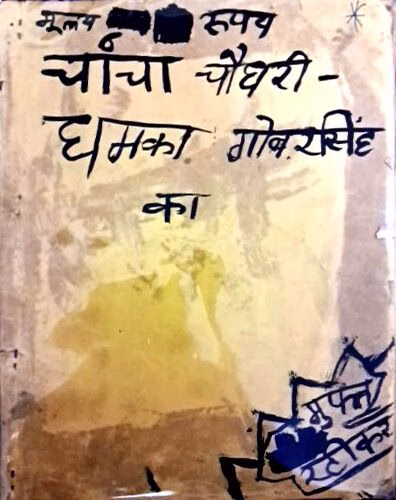 मूल्य रूपय
चाँचा चौधरी-
धमका गोबरसिंह
का
मुफ्त
स्टीकर